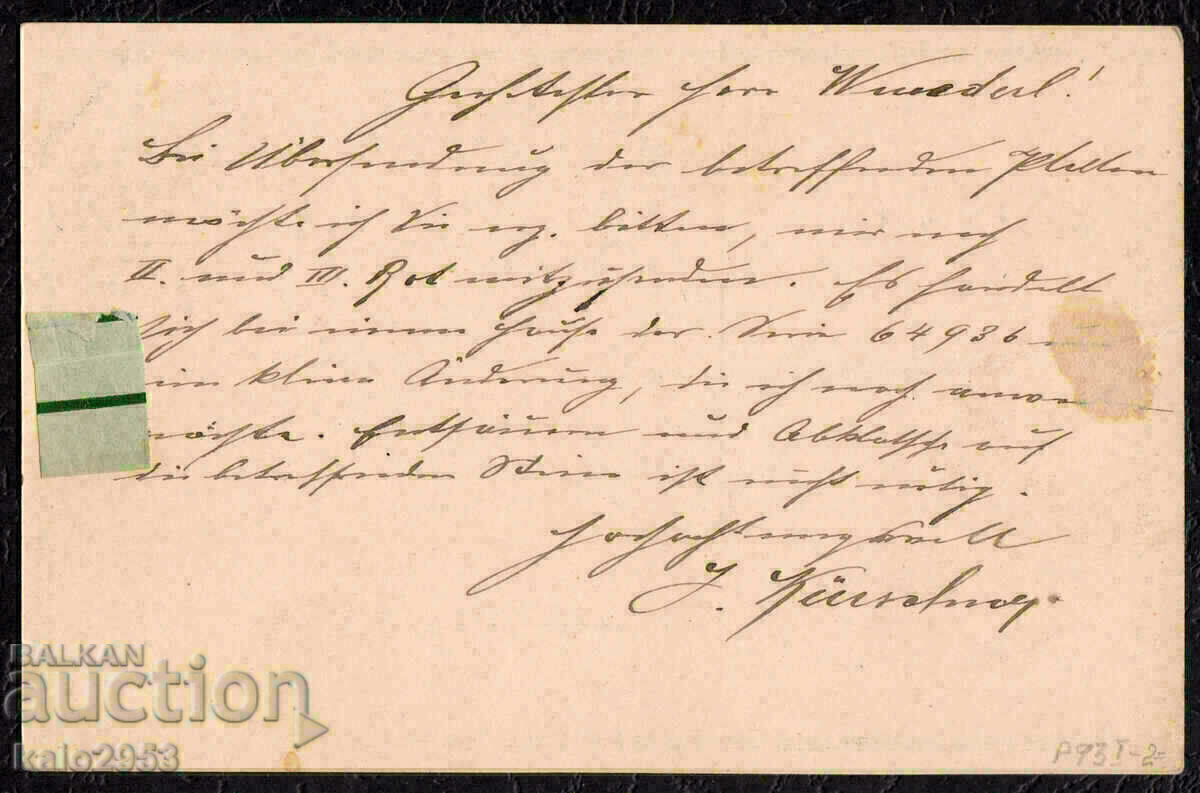 Geehrtester Herr Wunderl!
Bei Übersendung der betreffenden Platten
möchte ich Sie erg. bitten, mir noch
II. und III. Rot mitzusenden. Es handelt
sich bei einem Hause der Serie 64936
eine kleine Änderung, die ich noch
möchte. Entsäuern und Abklatsche auf
die betreffenden Steine ist nicht nötig.
Hochachtungsvoll
J. Kürschner
BALKAN
auction
kalo2953
P93 I-2-